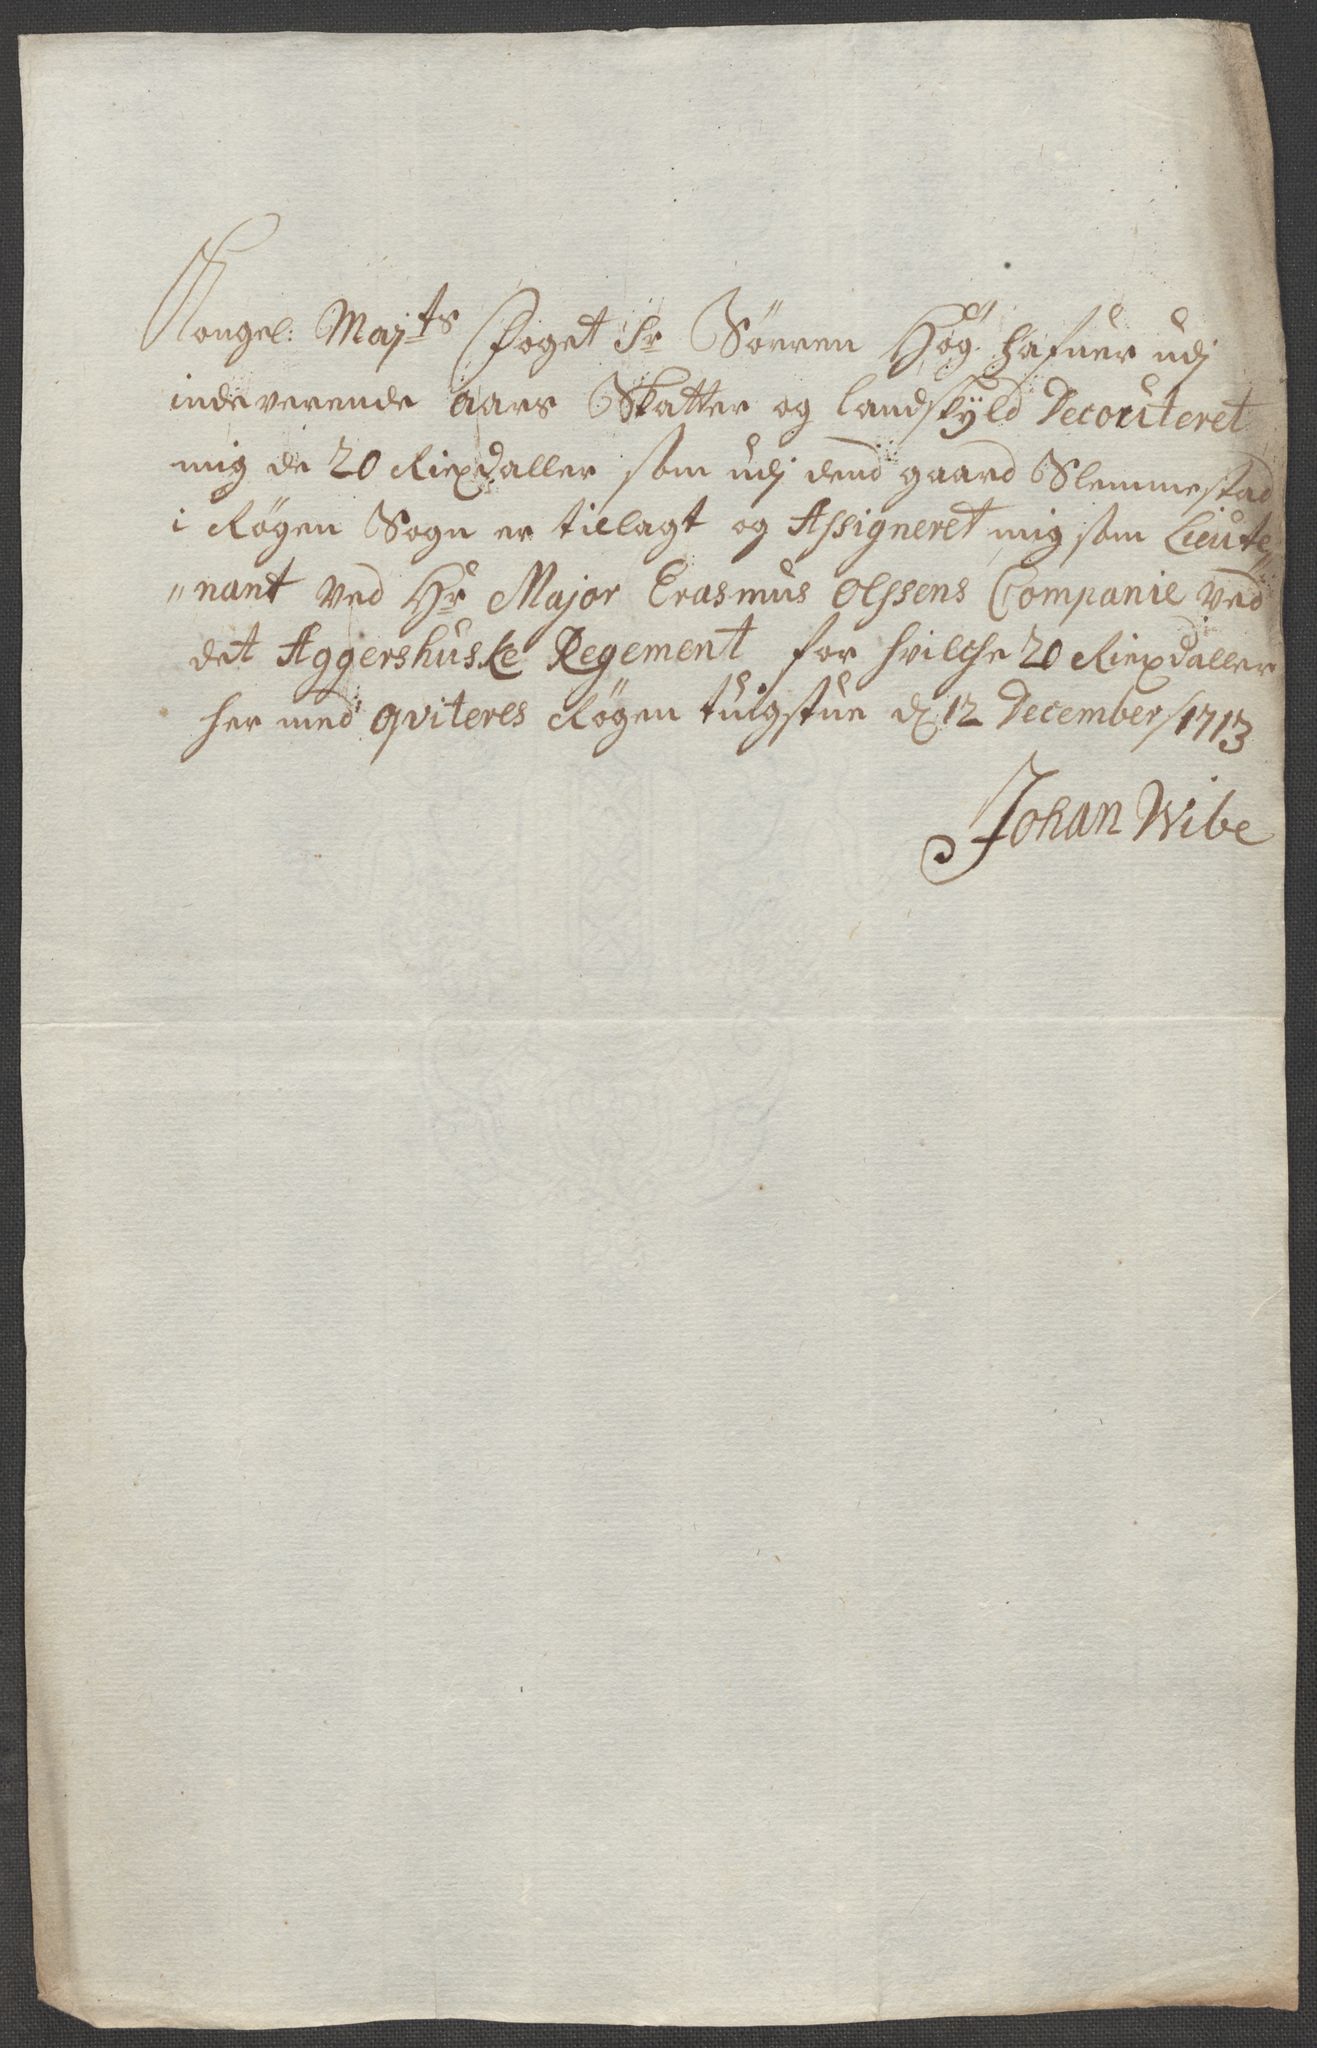 Kongel: Maj:ts Foget Sr Sörren Høg hafuer udj
indeverende aars Skatter og landskyld Decorteret
mig de 20 Rixdaller som udj dend gaard Slemmestad
i Røgen Sogn er tillagt og Assigneret mig som Lieute
"nant ved Hr Major Erasmus Olssens Companie ved
det Aggershuske Regement for hvilche 20 Rixdaller
her med qviteres Røgen tingstue d 12 December/1713
Johan Wibe